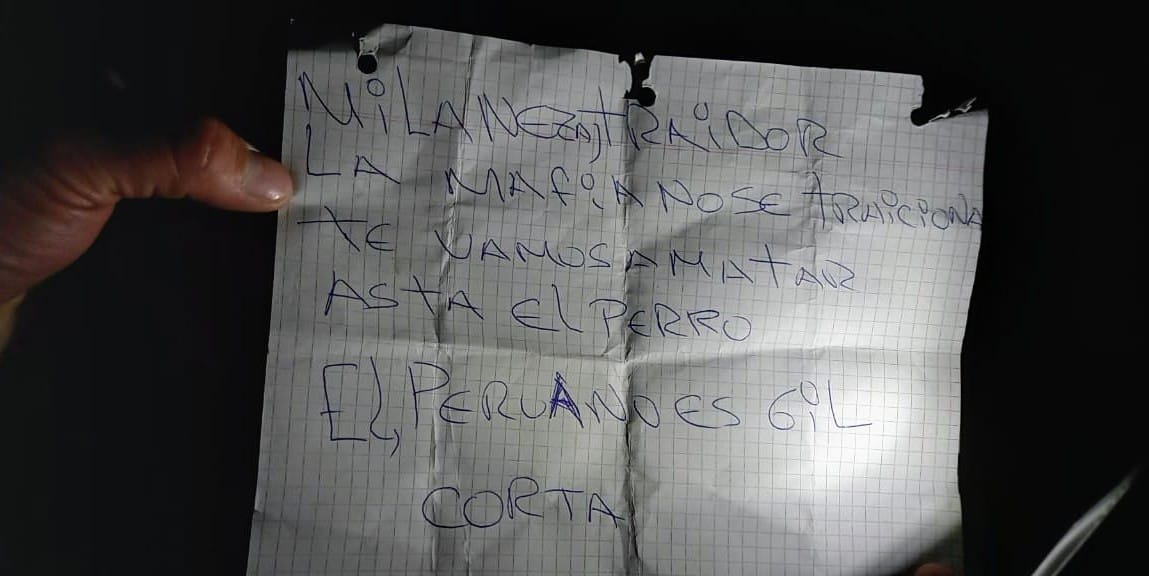 MiLANEZA TRAiDOR
LA MAFiA NO SE TRAICIONA
TE VAMOS A MATAR
ASTA El PERRO
El, PERUANO ES GiL
CORTA